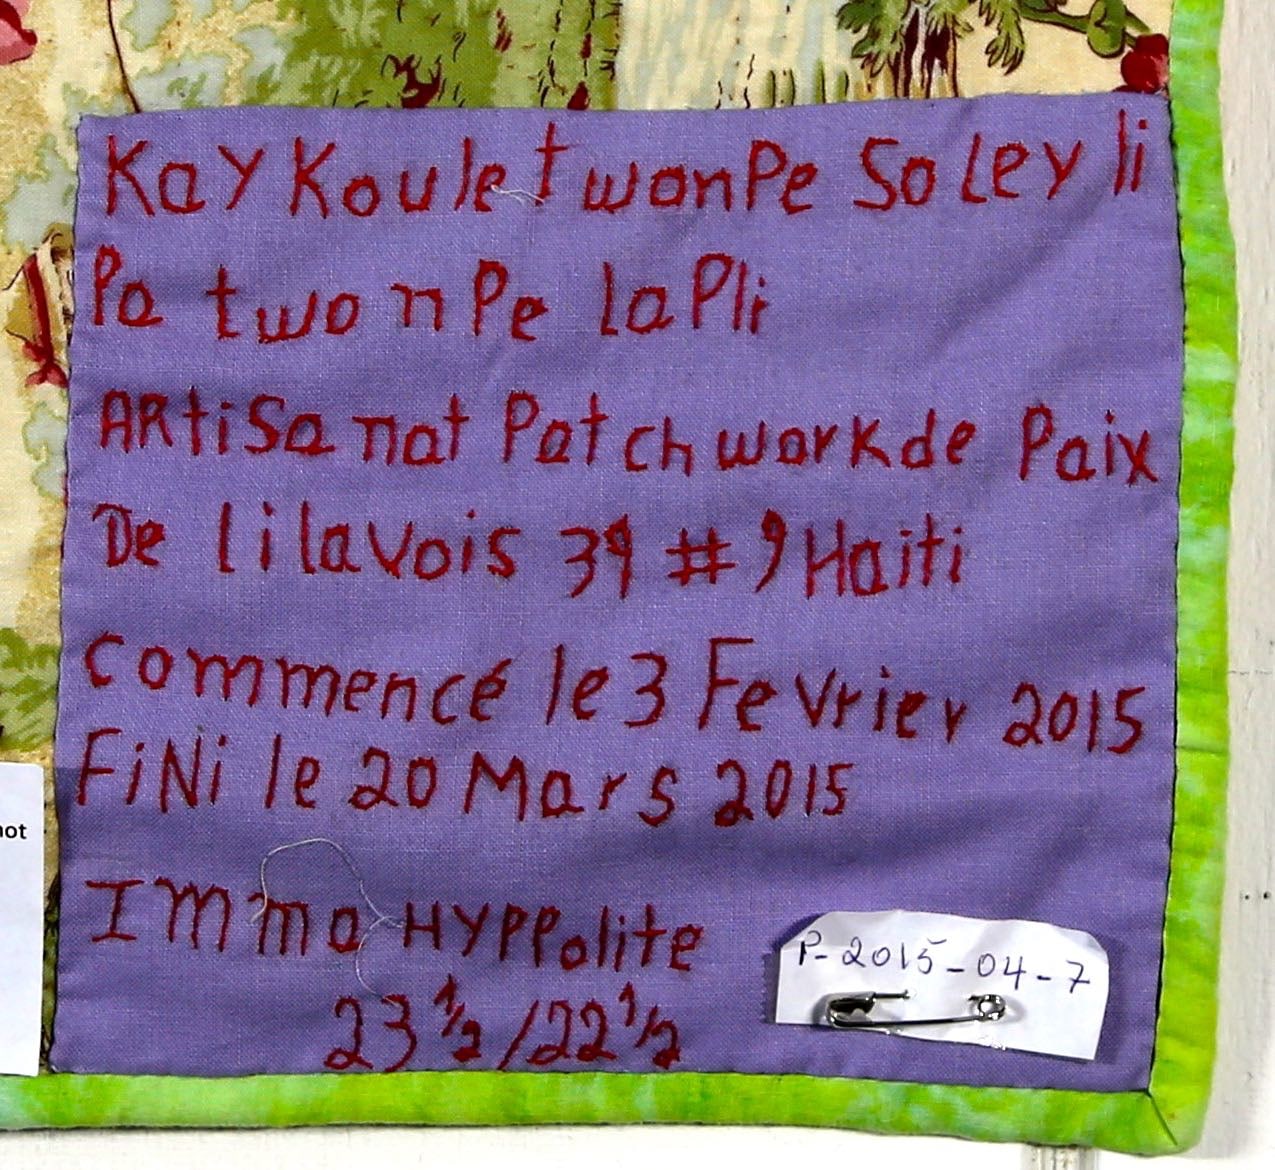 Kay Koule twonPe Soley li
Pa twonPe laPli
ARtiSanat Patchwork de Paix
De lilavois 39 # 9 Haiti
commencé le 3 Fevrier 2015
FiNi le 20 Mars 2015
Imma HYPPolite
23 1/2 / 22 1/2
P-2015-04-7
not